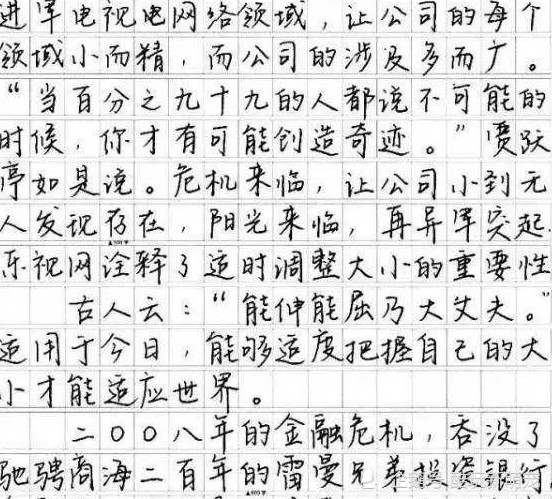 进军电视电网络领域，让公司的每个
领域小而精，而公司的涉及多而广。
“当百分之九十九的人都说不可能的
时候，你才有可能创造奇迹。”贾跃
亭如是说。危机来临，让公司小到无
人发现存在，阳光来临，再异军突起.
乐视网诠释了适时调整大小的重要性
古人云：“能伸能屈乃大丈夫。”
适用于今日，能够适度把握自己的大
小才能适应世界。
二〇〇八年的金融危机，吞没了
驰骋商海二百年的雷曼兄弟投资银行